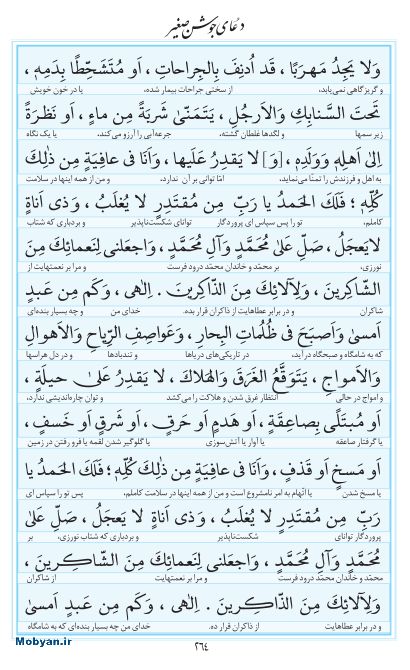 دعای جوشن صغیر
وَلا يَجِدُ مَهرَبًا ، قَد اُدنِفَ بِالجِراحاتِ ، اَو مُتَشَحِّطًا بِدَمِهِ ،
و گریزگاهی نمی‌یابد، از سختی جراحات بیمار شده، یا در خون خویش
تَحتَ السَّنابِكِ وَالاَرجُلِ ، يَتَمَنّىٰ شَربَةً مِن ماءٍ ، اَو نَظرَةً
زیر سمها و لگدها غلطان گشته، جرعه‌آبی را آرزو می‌کند، یا یک نگاه
اِلىٰ اَهلِهِ وَوَلَدِهِ ، [وَ] لا يَقدِرُ عَلَيها ، وَاَنَا فی عافِيَةٍ مِن ذٰلِكَ
به اهل و فرزندش را تمنّا می‌نماید، امّا توانی بر آن ندارد، و من از همه اینها در سلامت
كُلِّهِ ؛ فَلَكَ الحَمدُ يا رَبِّ مِن مُقتَدِرٍ لا يُغلَبُ ، وَذی اَناةٍ
کاملم، تو را پس سپاس ای پروردگار توانای شکست‌ناپذیر و بردباری که شتاب
لايَعجَلُ ، صَلِّ عَلىٰ مُحَمَّدٍ وَآلِ مُحَمَّدٍ ، وَاجعَلنی لِنَعمائِكَ مِنَ
نورزی، بر محمّد و خاندان محمّد درود فرست و مرا بر نعمتهایت از
الشّاكِرينَ ، وَلِآلائِكَ مِنَ الذّاكِرينَ . اِلٰهی ، وَكَم مِن عَبدٍ
شاکران و در برابر عطاهایت از ذاکران قرار بده. خدای من و چه بسیار بنده‌ای
اَمسىٰ وَاَصبَحَ فی ظُلُماتِ البِحارِ ، وَعَواصِفِ الرِّياحِ وَالاَهوالِ
که به شامگاه و صبحگاه درآید، در تاریکی‌های دریاها و تندبادها و در دل هراسها
وَالاَمواجِ ، يَتَوَقَّعُ الغَرَقَ وَالهَلاكَ ، لا يَقدِرُ عَلىٰ حيلَةٍ ،
و امواج در حالی انتظار غرق شدن و هلاکت را می‌کشد و توان چاره‌اندیشی ندارد،
اَو مُبتَلًى بِصاعِقَةٍ ، اَو هَدمٍ اَو حَرقٍ ، اَو شَرقٍ اَو خَسفٍ ،
یا گرفتار صاعقه یا آوار یا آتش‌سوزی یا گلوگیر شدن لقمه یا فرو رفتن در زمین
اَو مَسخٍ اَو قَذفٍ ، وَاَنَا فی عافِيَةٍ مِن ذٰلِكَ كُلِّهِ ؛ فَلَكَ الحَمدُ يا
یا مسخ شدن یا اتّهام به امر نامشروع است و من از همه اینها در سلامت کاملم، پس تو را سپاس ای
رَبِّ مِن مُقتَدِرٍ لا يُغلَبُ ، وَذی اَناةٍ لا يَعجَلُ ، صَلِّ عَلىٰ
پروردگار توانای شکست‌ناپذیر و بردباری که شتاب نورزی، بر
مُحَمَّدٍ وَآلِ مُحَمَّدٍ ، وَاجعَلنی لِنَعمائِكَ مِنَ الشّاكِرينَ ،
محمّد و خاندان محمّد درود فرست و مرا بر نعمتهایت از شاکران
وَلِآلائِكَ مِنَ الذّاكِرينَ . اِلٰهی ، وَكَم مِن عَبدٍ اَمسىٰ
و در برابر عطاهایت از ذاکران قرار ده. خدای من چه بسیار بنده‌ای که به شامگاه
۲۶۴
Mobyan.ir